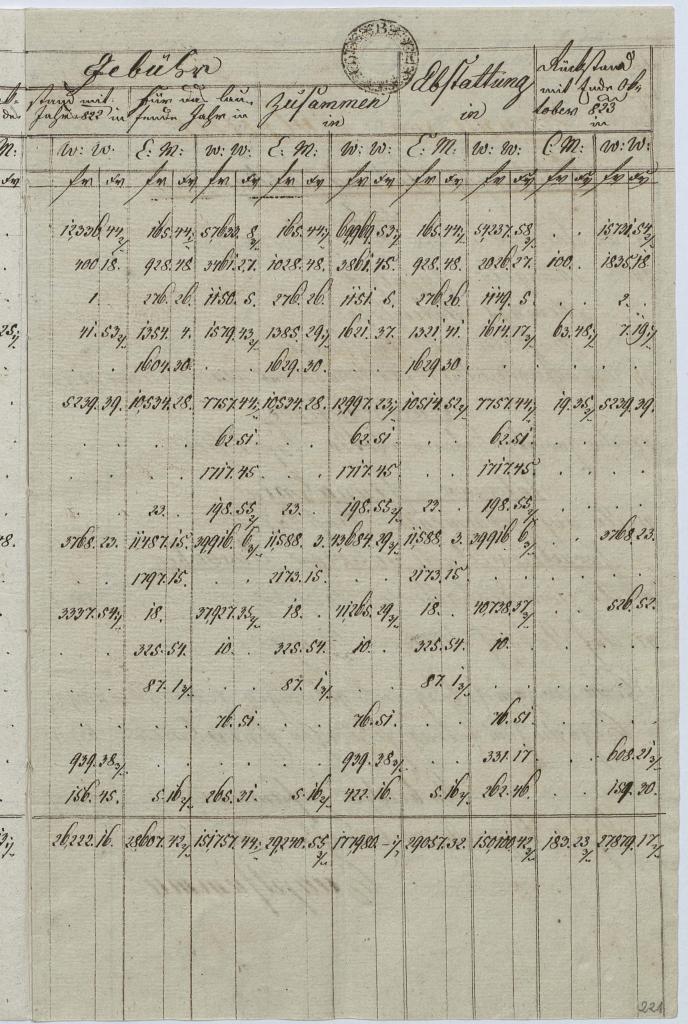 Gebühr Abstattung Rückstand
stand mit für das lau- Zusammen in mit Ende Ok-
Jahr 822 in fende Jahr in in tober 823
in
W: W: C: M: W: W: C: M: W: W: C: M: W: W: C: M: W: W:
fr xr fr xr fr xr fr xr fr xr fr xr fr xr fr xr fr xr
12,336. 44 165. 44 57633. 8 165. 44 69969. 53 165. 44 54237. 58 . . 15731. 54
400 18. 928. 48 3461. 27. 1028. 48. 3861. 45. 928. 48. 2026. 27. 100. . 1835. 18
1. 276. 26. 1150. 5. 276. 26. 1151. 5. 276. 26. 1149. 5. . . 2. .
41. 53 1354. 4. 1579. 43 1385. 29 1621. 37. 1321. 41. 1614. 17 63. 48 7. 19
. . 1604. 30. . . 1629. 30. . . 1629 30 . . . . . .
5239. 39. 10,534. 28. 7757. 44 10,534. 28. 12,997. 23 10,514. 52 7757. 44 19. 35 5239. 39.
. . . . 62. 51 . . 62. 51 . . 62. 51. . . . .
. . . . 1717. 45 . . 1717. 45 . . 1717. 45 . . . .
. . 23. . 198. 55 23. . 198. 55 23. . 198. 55 . . . .
3768. 23. 11,487. 15. 39,916. 6 11,588. 3. 43,684. 29 11,588. 3. 39,916. 6 . . 3768. 23.
. . 1797. 15. . . 2173. 15. . . 2173. 15. . . . . . .
3337. 54 18. . 37,927. 35 18. . 41,265. 29 18. . 40,738. 37 . . 526. 52.
. . 325. 54. 10. . 325. 54. 10. . 325. 54. 10. . . . . .
. . 87. 1 . . 87. 1 . . 87. 1 . . . . . .
. . . . 76. 51. . . 76. 51. . . 76. 51 . . . .
939. 38 . . . . . . 939. 38 . . 331. 17 . . 608. 21
156. 45. 5. 16 265. 31. 5. 16 422. 16. 5. 16 262. 46. . . 159. 30.
26,222. 16. 28,607. 42 151,757. 44 29,240. 55 177,980. – 29057. 32. 150,100. 42 183. 23 27,879. 17
221